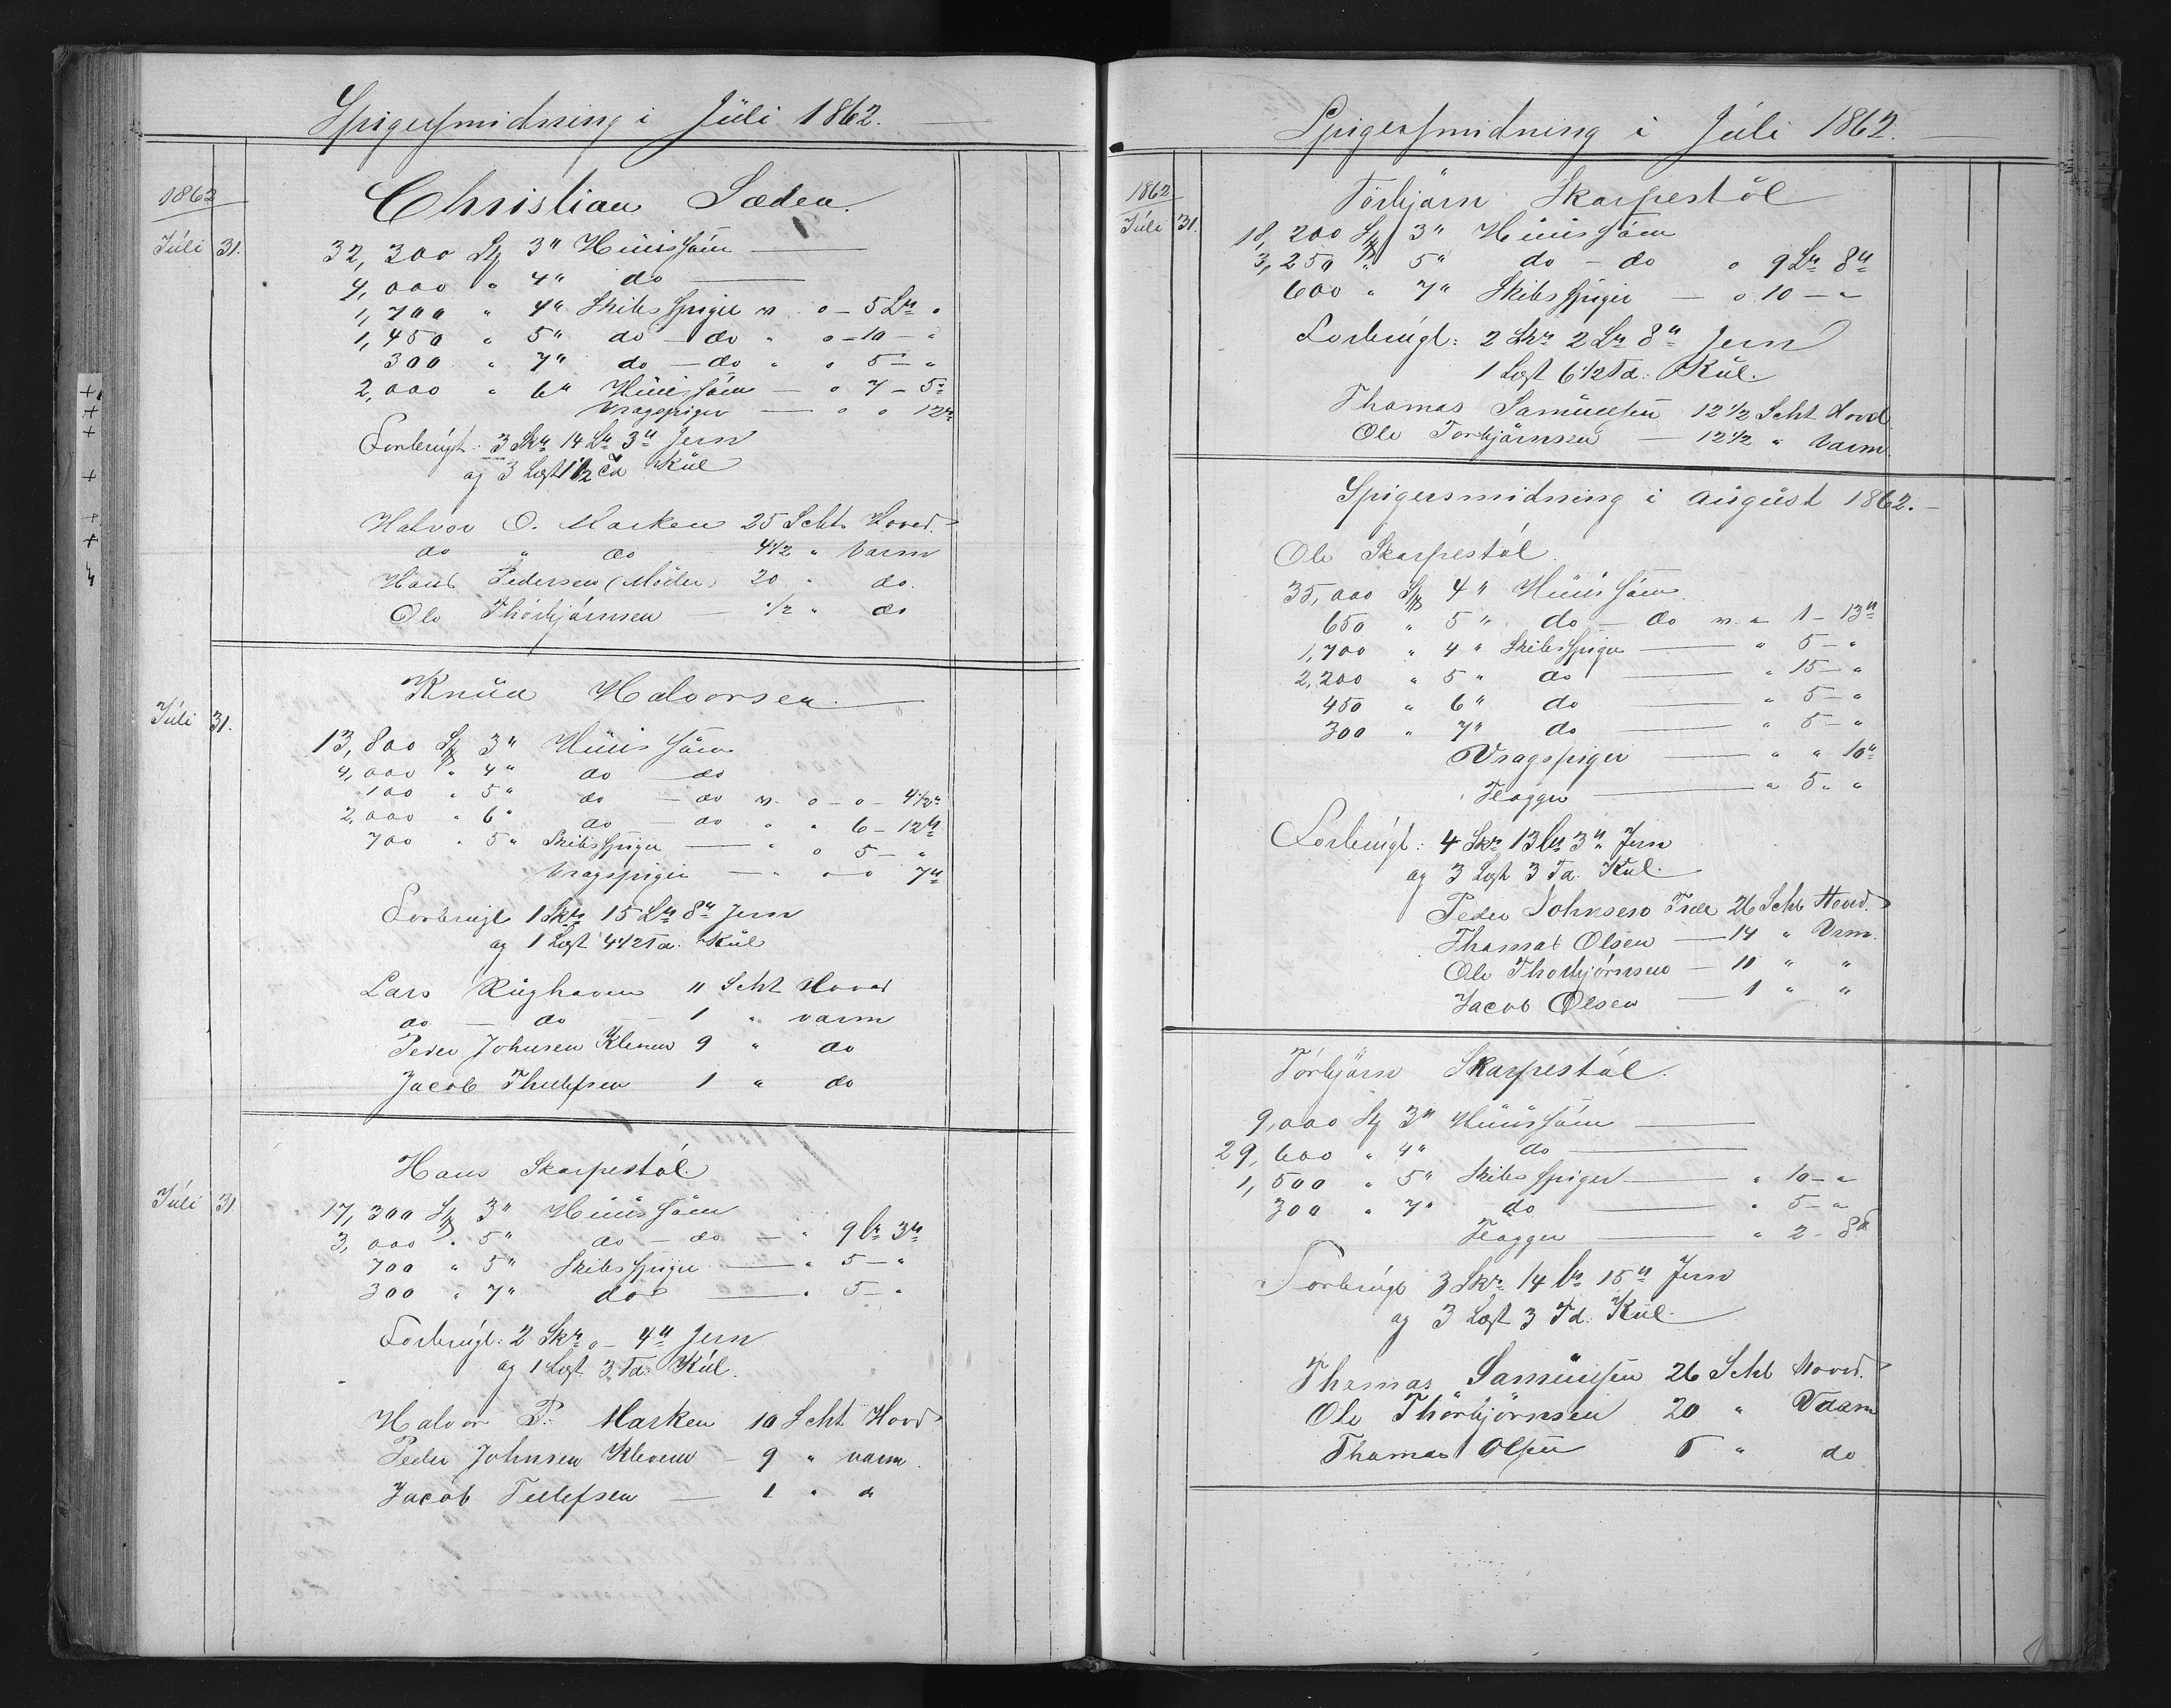 Spigersmidning i Júli 1862.
1862
Christian Sæden.
Júli 31. 32,300 Stk 3" Húússöm
4,000 " 4" do
1,700 " 4" Skibsspiger v. o - 5 L℔ "
1,450 " 5" do - do " o - 10 - "
300 " 7" do - do " o 5 - "
2,000 " 6" Húússöm - o 7 - 5℔
Vragspiger - o o 12℔
Forbrúgt: 3 Sk℔ 14 L℔ 3℔ Jern
og 3 Lest 1 1/2 Td Kúl
Halvor O. Marken 25 Scht. Hoved.
do " do 4 1/2 " Varm
Hans Pedersen (Möder) 20 " do.
Ole Thorbjörnsen - 1/2 " do
Knúd Halvorsen.
Júli 31. 13,800 Stk 3" Húússöm
4,000 " 4" do do
100 " 5" do - do v. o - o - 4 1/2℔
2,000 " 6" do - do " " 6 - 12℔
700 " 5" Skibsspiger - " o 5 - "
Vragspiger - " o o 7℔
Forbrúgt 1 Sk℔ 15 L℔ 8℔ Jern
og 1 Lest 4 1/2 Td. Kúl
Lars Rúghaven 11 Scht Hoved
do - do - 1 " varm
Peder Johnsen Kleven 9 " do
Jacob Thellefsen 1 " do
Hans Skarpestöl.
Júli 31 17,300 Stk 3" Húússöm
3,000 " 5" do - do - " 9 L℔ 3℔
700 " 5" Skibsspiger - " 5 - "
300 " 7" do - " 5 - "
Forbrúgt: 2 Sk℔ o - 4℔ Jern
og 1 Lest 3 Td. Kúl.
Halvor P. Marken 10 Scht Hovd
Peder Johnsen Kleven - 9 " varm.
Jacob Tellefsen - 1 " d
Spigersmidning i Júli 1862.
1862
Törbjörn Skarpestöl
Júli 31. 18,200 Stk 3" Húússöm
3,250 " 5" do - do o 9 L℔ 8℔
600 " 7" Skibsspiger - o 10 - "
Forbrúgt: 2 Sk℔ 2 L℔ 8℔ Jern
1 Lest 6 1/2 Td. Kúl.
Thomas Samúelsen 12 1/2 Scht Hovd
Ole Torbjörnsen - 12 1/2 " Varm.
Spigersmidning i aúgúst 1862.
Ole Skarpestöl.
35,000 Stk 4" Húússöm.
650 " 5" do - do v. " 1 - 13℔
1,700 " 4" Skibsspiger - " 5 - "
2,200 " 5" do - " 15 - "
450 " 6" do - " 5 - "
300 " 7" do - " 5 - "
Vragspiger - " " 10℔
Flogger - " 5 " "
Forbrúgt: 4 Sk℔ 13 L℔ 3℔ Jern
og 3 Lest 3 Td. Kúl.
Peder Johnsen 26 Scht Hovd.
Thomas Olsen - 14 " Vrm.
Ole Thorbjörnsen - 11 " "
Jacob Olsen - 1 " "
Törbjörn Skarpestöl.
9,000 Stk 3" Húússöm
29,600 " 4" do
1,500 " 5" Skibsspiger - " 10 - "
300 " 7" do - " 5 - "
Flogger - " 2 - 8℔
Forbrúgt 3 Sk℔ 14 L℔ 15℔ Jern
og 3 Lest 3 Td. Kúl.
Thomas Samúelsen 26 Scht Hovd.
Ole Thorbjörnsen 20 " Vaarm
Thomas Olsen 5 " do